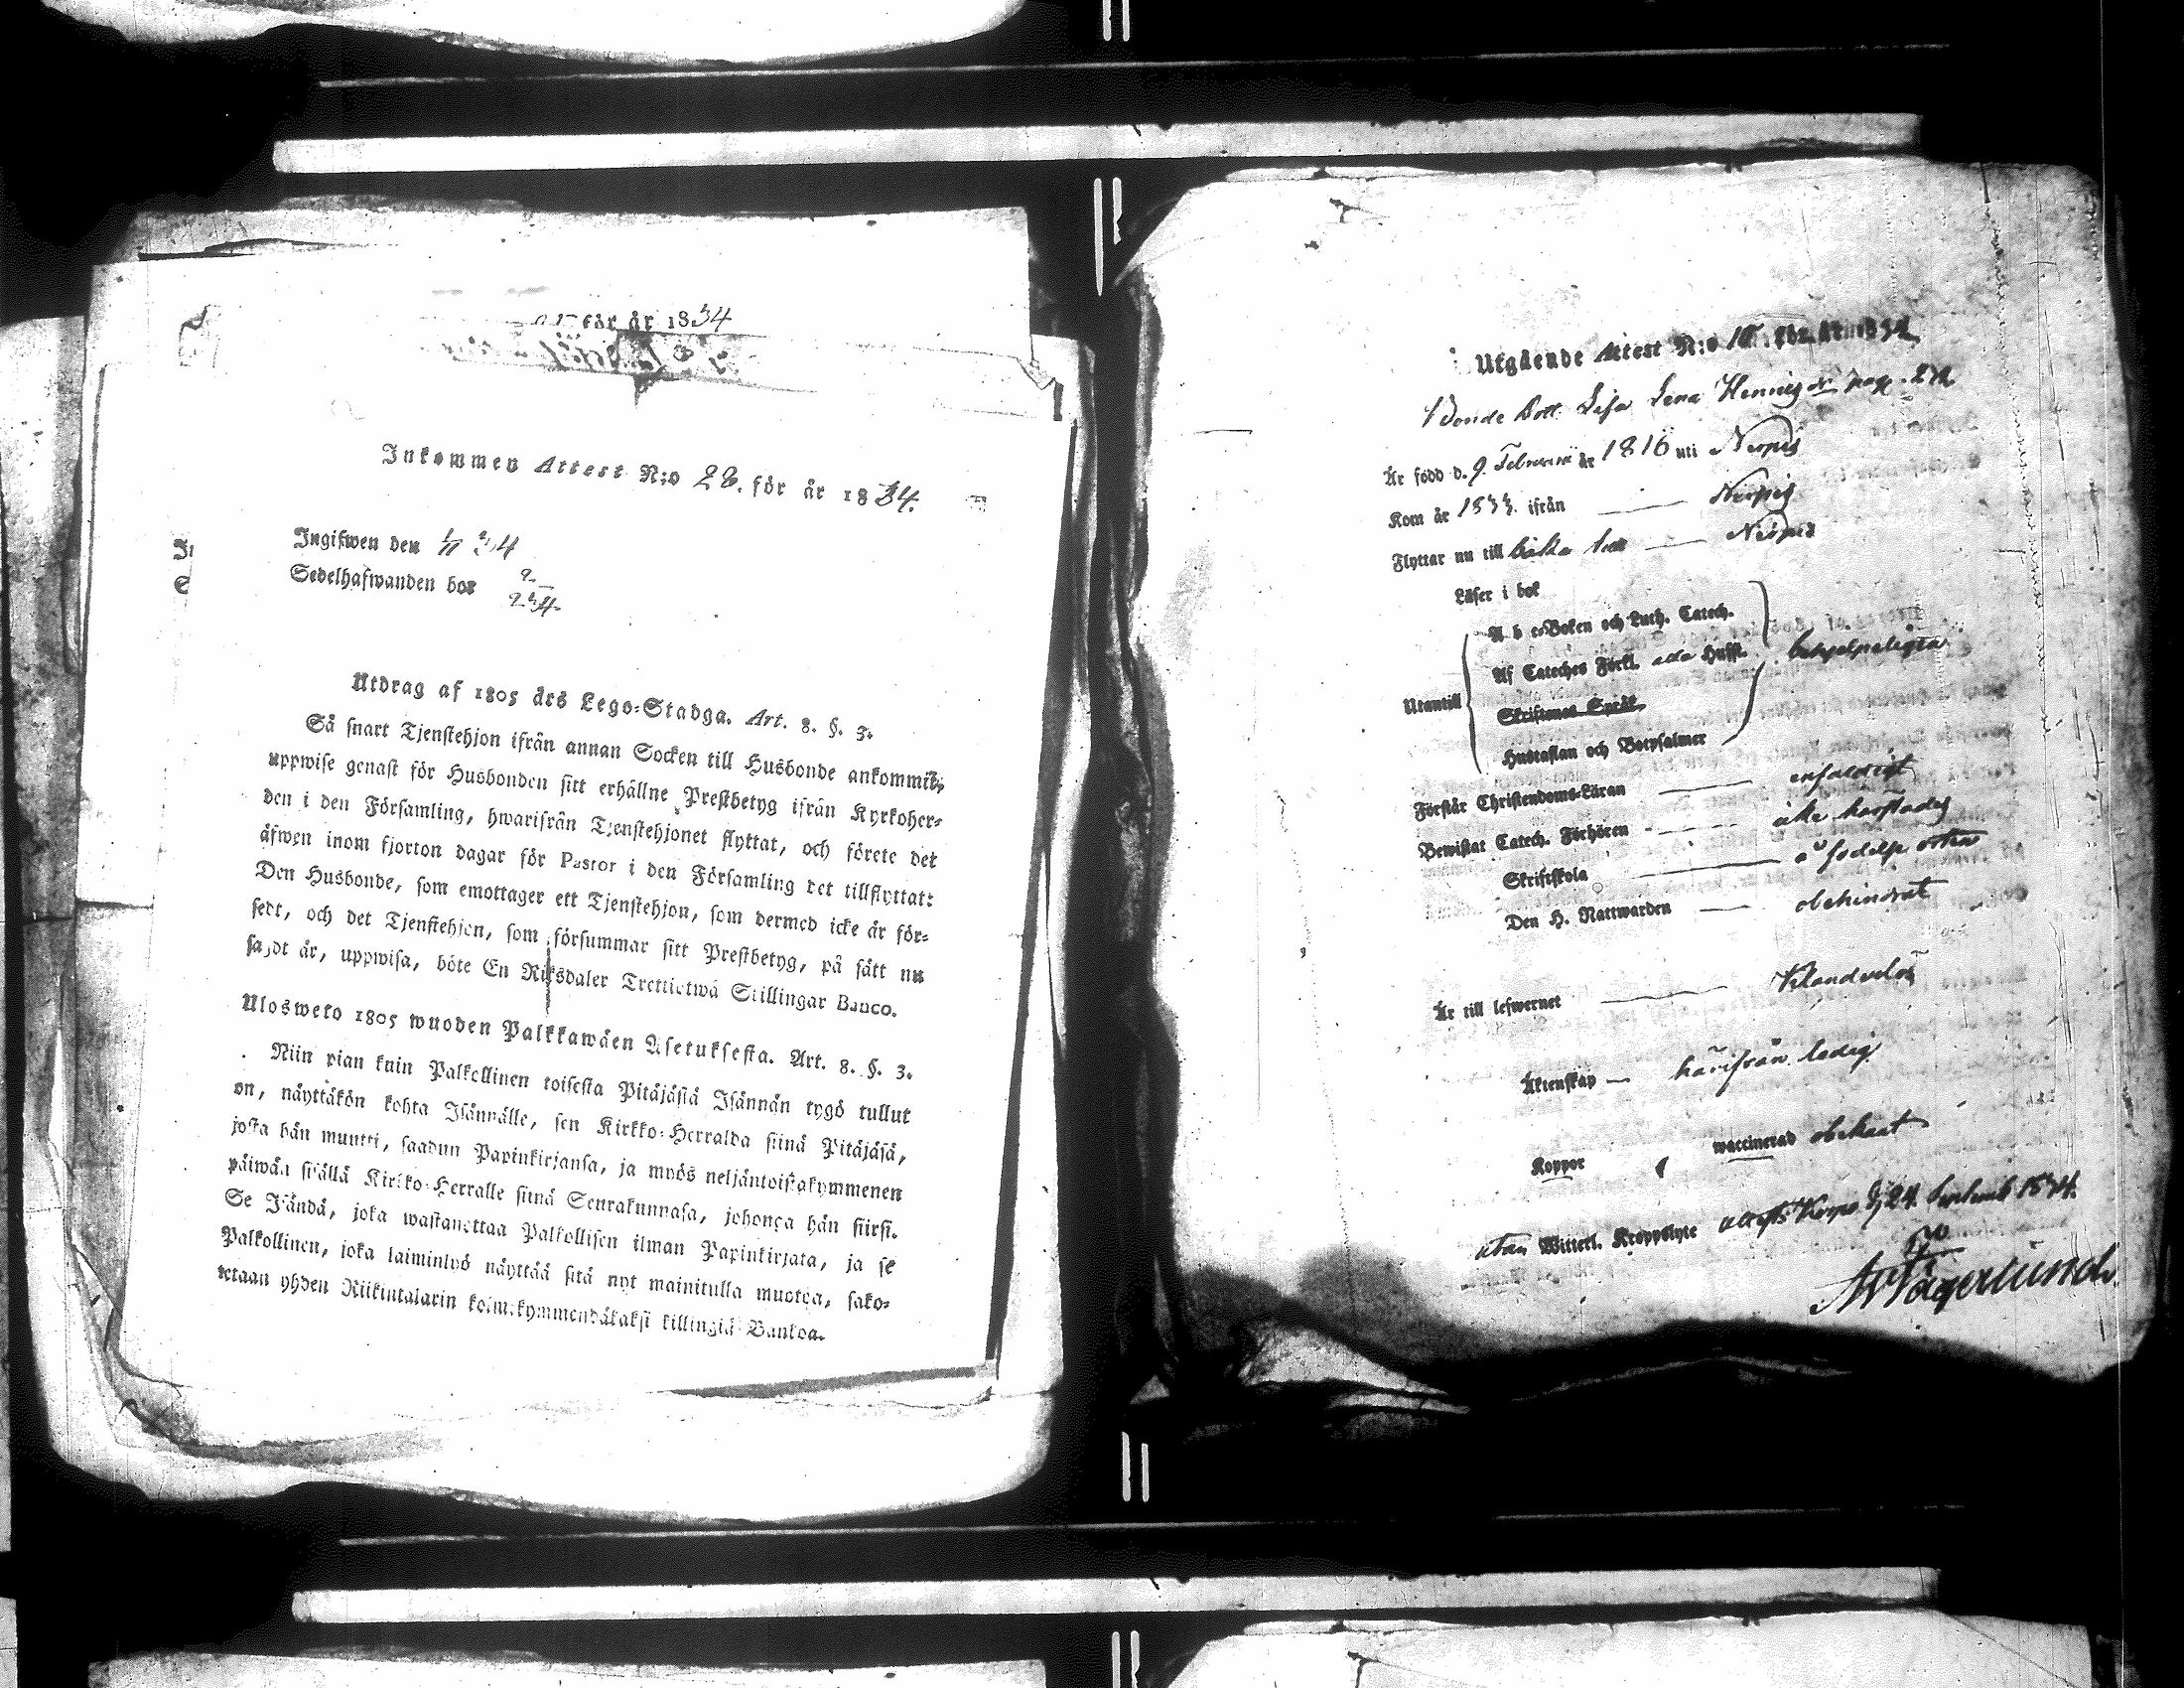 för år 1834
Inkommen Attest N:o 28. för år 1834.
Ingifwen den 34
Sedelhafwanden bor
Utdrag af 1805 års Lego-Stadga. Art. 8. §. 3.
Så snart Tjenstehjon ifrån annan Socken till Husbonde ankommit,
uppwise genast för Husbonden sitt erhållne Prestbetyg ifrån Kyrkoher-
den i den Församling, hwarifrån Tjenstehjonet flyttat, och förete det
äfwen inom fjorton dagar för Pastor i den Församling det tillflyttat:
Den Husbonde, som emottager ett Tjenstehjon, som dermed icke är för-
sedt, och det Tjenstehjon, som försummar sitt Prestbetyg, på sätt nu
sagdt är, uppwisa, böte En Riksdaler Trettiotwå Skillingar Banco.
Ulosweto 1805 wuoden Palkkawäen Asetuksesta. Art. 8. §. 3.
Niin pian kuin Palkollinen toisesta Pitäjästä Isännän tygö tullut
on, näyttäkön kohta Isännälle, sen Kirkko-Herralda siinä Pitäjäsä,
josta hän muutti, saadun Papinkirjansa, ja myös neljäntoistakymmenen
päiwän sisällä Kirkko-Herralle siinä Seurakunnasa, johonga hän siirsi.
Se Isändä, joka wastanottaa Palkollisen ilman Papinkirjata, ja se
Palkollinen, joka laiminlyö näyttää sitä nyt mainitulla muotoa, sako-
tetaan yhden Riikintalarin kolmekymmendäkaksi killingiä Bankoa.
Utgående Attest N:o för år 1834
Bonde Dott. Lisa Lena Henrics dr pag. 272
Är född d. 9 Februari år 1816 uti Nerpis
Kom år 1833 ifrån Nerpis
Flyttar nu till Nerpis
Läser i bok
A b c-Boken och Luth. Catech.
Utantill Af Cateches Förkl. alla Husst. behjelpeligen
Skriftenes Språk,
Hustaflan och Botpsalmer
Förstår Christendoms-Läran enfaldigt
Bewistat Catech. Förhören icke
Skriftskola å födelse orten
Den H. Nattwarden obehindrat
Är till lefwernet Klanderlös
Äktenskap härifrån ledig
Koppor waccinerad obekant
utan Witterl. Kroppslyte attest. Korss d. 24 Septemb 1834.